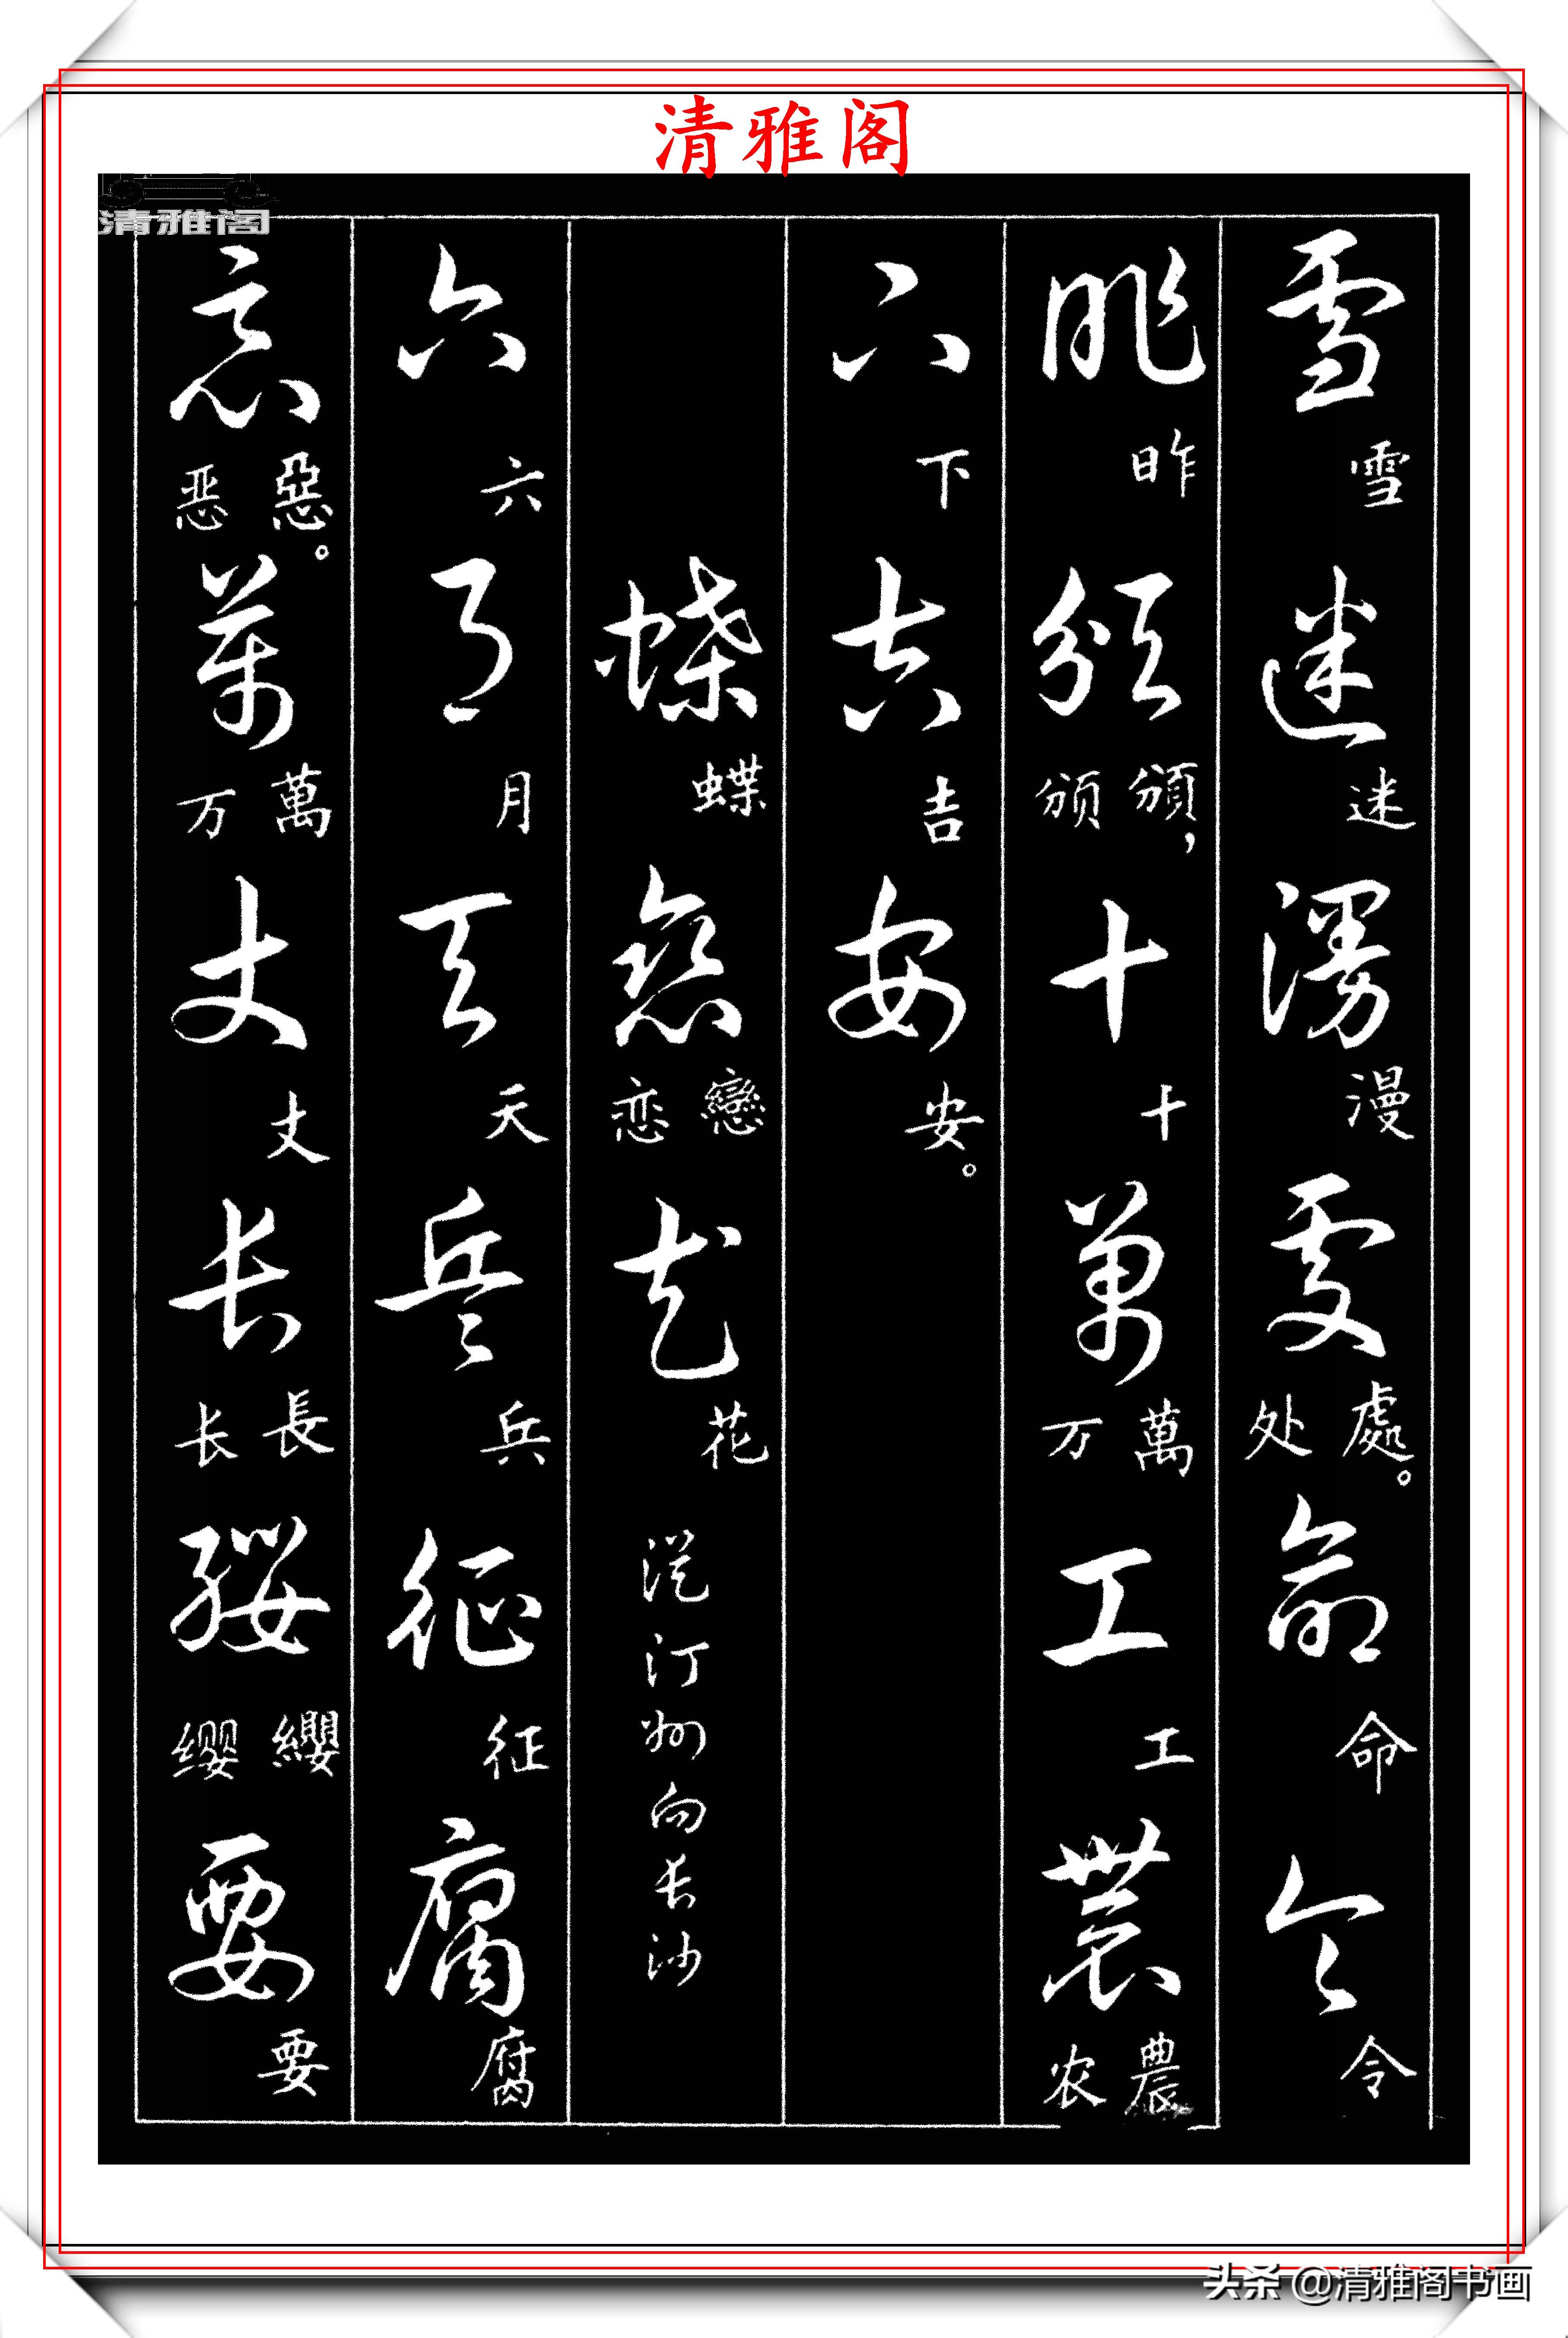 清雅阁
清雅阁
雪雪迷迷漫漫處處。处命命令令
昨昨頒頒，颁十十萬萬万工工農農农
下下吉吉安安。
蝶蝶戀戀恋花花從汀州向長沙
六六月月天天兵兵征征腐腐
惡惡。恶萬萬万丈丈長長长纓纓缨要要
头条 @清雅阁书画